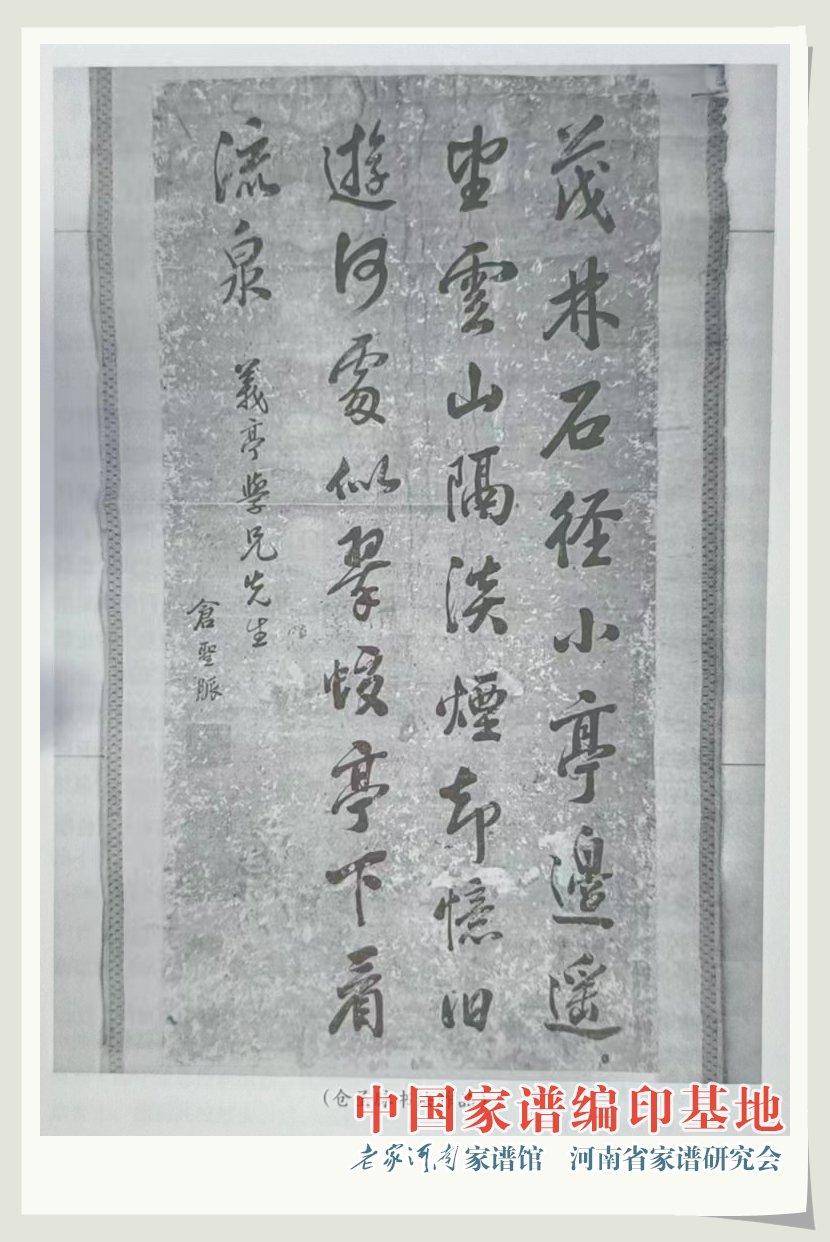 茂林石径小亭邊遥
望雲山隔淡煙却憶旧
遊何處似翠蛟亭下看
流泉
義亭學兄先生
倉聖脈
(仓
中国家谱编印基地
老家河南家谱馆 河南省家谱研究会